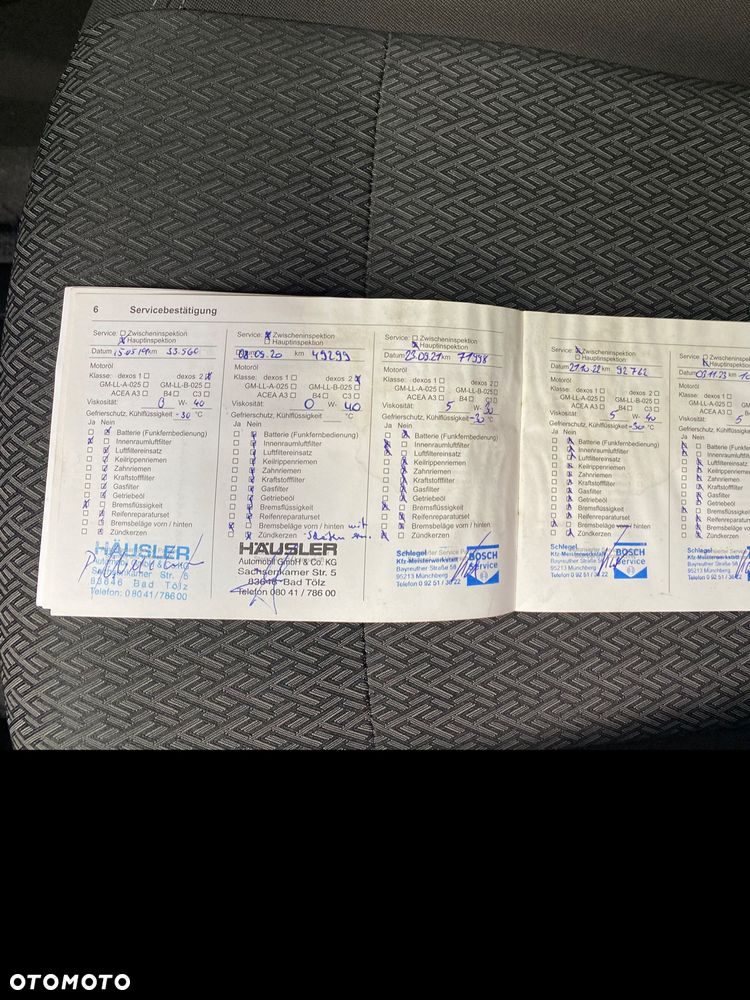 6 Servicebestätigung
Service: Zwischeninspektion
Hauptinspektion
Datum 15.05.19 km 33.560
Motoröl
Klasse: dexos 1 dexos 2
GM-LL-A-025 GM-LL-B-025
ACEA A3 B4 C3
Viskosität: 0 W- 40
Gefrierschutz, Kühlflüssigkeit -30 °C
Ja Nein
Batterie (Funkfernbedienung)
Innenraumluftfilter
Luftfiltereinsatz
Keilrippenriemen
Zahnriemen
Kraftstofffilter
Gasfilter
Getriebeöl
Bremsflüssigkeit
Reifenreparaturset
Bremsbeläge vorn / hinten
Zündkerzen
HÄUSLER
Automobil GmbH & Co. KG
Sachsenkamer Str. 5
83646 Bad Tölz
Telefon: 0 80 41 / 786 00
Service: Zwischeninspektion
Hauptinspektion
08.09.20 km 49299
Motoröl
Klasse: dexos 1 dexos 2
GM-LL-A-025 GM-LL-B-025
ACEA A3 B4 C3
Viskosität: 0 W- 40
Gefrierschutz, Kühlflüssigkeit °C
Ja Nein
Batterie (Funkfernbedienung)
Innenraumluftfilter
Luftfiltereinsatz
Keilrippenriemen
Zahnriemen
Kraftstofffilter
Gasfilter
Getriebeöl
Bremsflüssigkeit
Reifenreparaturset
Bremsbeläge vorn / hinten mit
Zündkerzen
HÄUSLER
Automobil GmbH & Co. KG
Sachsenkamer Str. 5
83646 Bad Tölz
Telefon 080 41 / 786 00
Service: Zwischeninspektion
Hauptinspektion
Datum 23.09.21 km 71998
Motoröl
Klasse: dexos 1 dexos 2
GM-LL-A-025 GM-LL-B-025
ACEA A3 B4 C3
Viskosität: 5 W- 30
Gefrierschutz, Kühlflüssigkeit -30 °C
Ja Nein
Batterie (Funkfernbedienung)
Innenraumluftfilter
Luftfiltereinsatz
Keilrippenriemen
Zahnriemen
Kraftstofffilter
Gasfilter
Getriebeöl
Bremsflüssigkeit
Reifenreparaturset
Bremsbeläge vorn / hinten
Zündkerzen
Schlegel
Kfz-Meisterwerkstatt
Bayreuther Straße 58
95213 Münchberg
Telefon 0 92 51 / 36 22
BOSCH
Service
Service: Zwischeninspektion
Hauptinspektion
Datum 21.10.22 km 92762
Motoröl
Klasse: dexos 1 dexos 2
GM-LL-A-025 GM-LL-B-025
ACEA A3 B4 C3
Viskosität: 5 W- 40
Gefrierschutz, Kühlflüssigkeit -30 °C
Ja Nein
Batterie (Funkfernbedienung)
Innenraumluftfilter
Luftfiltereinsatz
Keilrippenriemen
Zahnriemen
Kraftstofffilter
Gasfilter
Getriebeöl
Bremsflüssigkeit
Reifenreparaturset
Bremsbeläge vorn / hinten
Zündkerzen
Schlegel
Kfz-Meisterwerkstatt
Bayreuther Straße 58
95213 Münchberg
Telefon 0 92 51 / 36 22
BOSCH
Service
Service: Zwischeninspektion
Hauptinspektion
Datum 03.11.23 km
Motoröl
Klasse: dexos 1
GM-LL-A-025
ACEA A3
Viskosität: 5
Gefrierschutz, Kühlflüssigkeit
Ja Nein
Batterie (Funkfernbedienung)
Innenraumluftfilter
Luftfiltereinsatz
Keilrippenriemen
Zahnriemen
Kraftstofffilter
Gasfilter
Getriebeöl
Bremsflüssigkeit
Reifenreparaturset
Bremsbeläge vorn
Zündkerzen
Schlegel
Kfz-Meisterwerkstatt
Bayreuther Straße 58
95213 Münchberg
Telefon 0 92 51 / 36 22
OTOMOTO